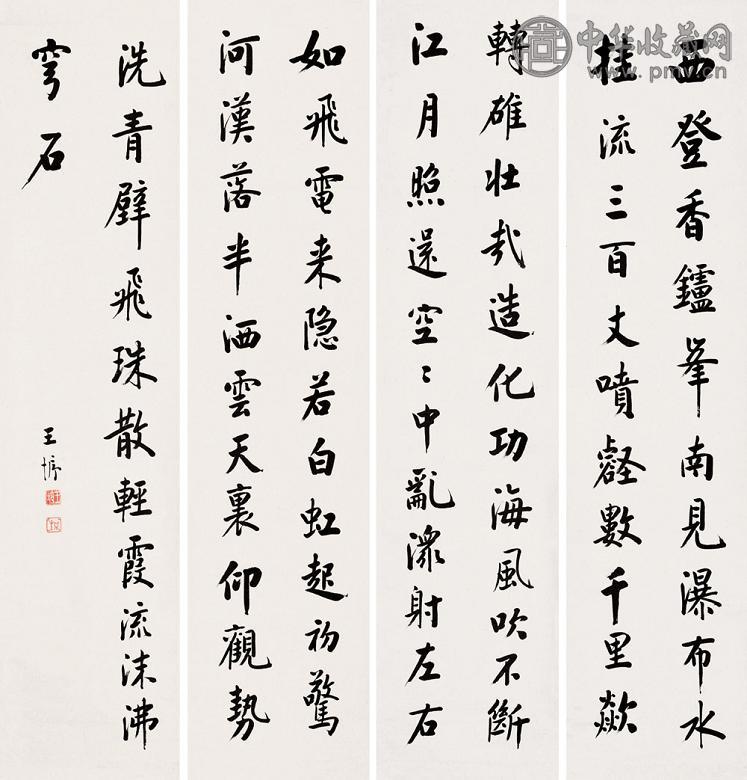 西登香鑪峯南見瀑布水
挂流三百丈噴壑數千里歘
轉雄壯哉造化功海風吹不斷
江月照還空〻中亂潨射左右
如飛電来隐若白虹起初驚
河漢落半洒雲天裏仰觀勢
洗青壁飛珠散輕霞流沫沸
穹石
王
中华收藏网
www.pmv.cn